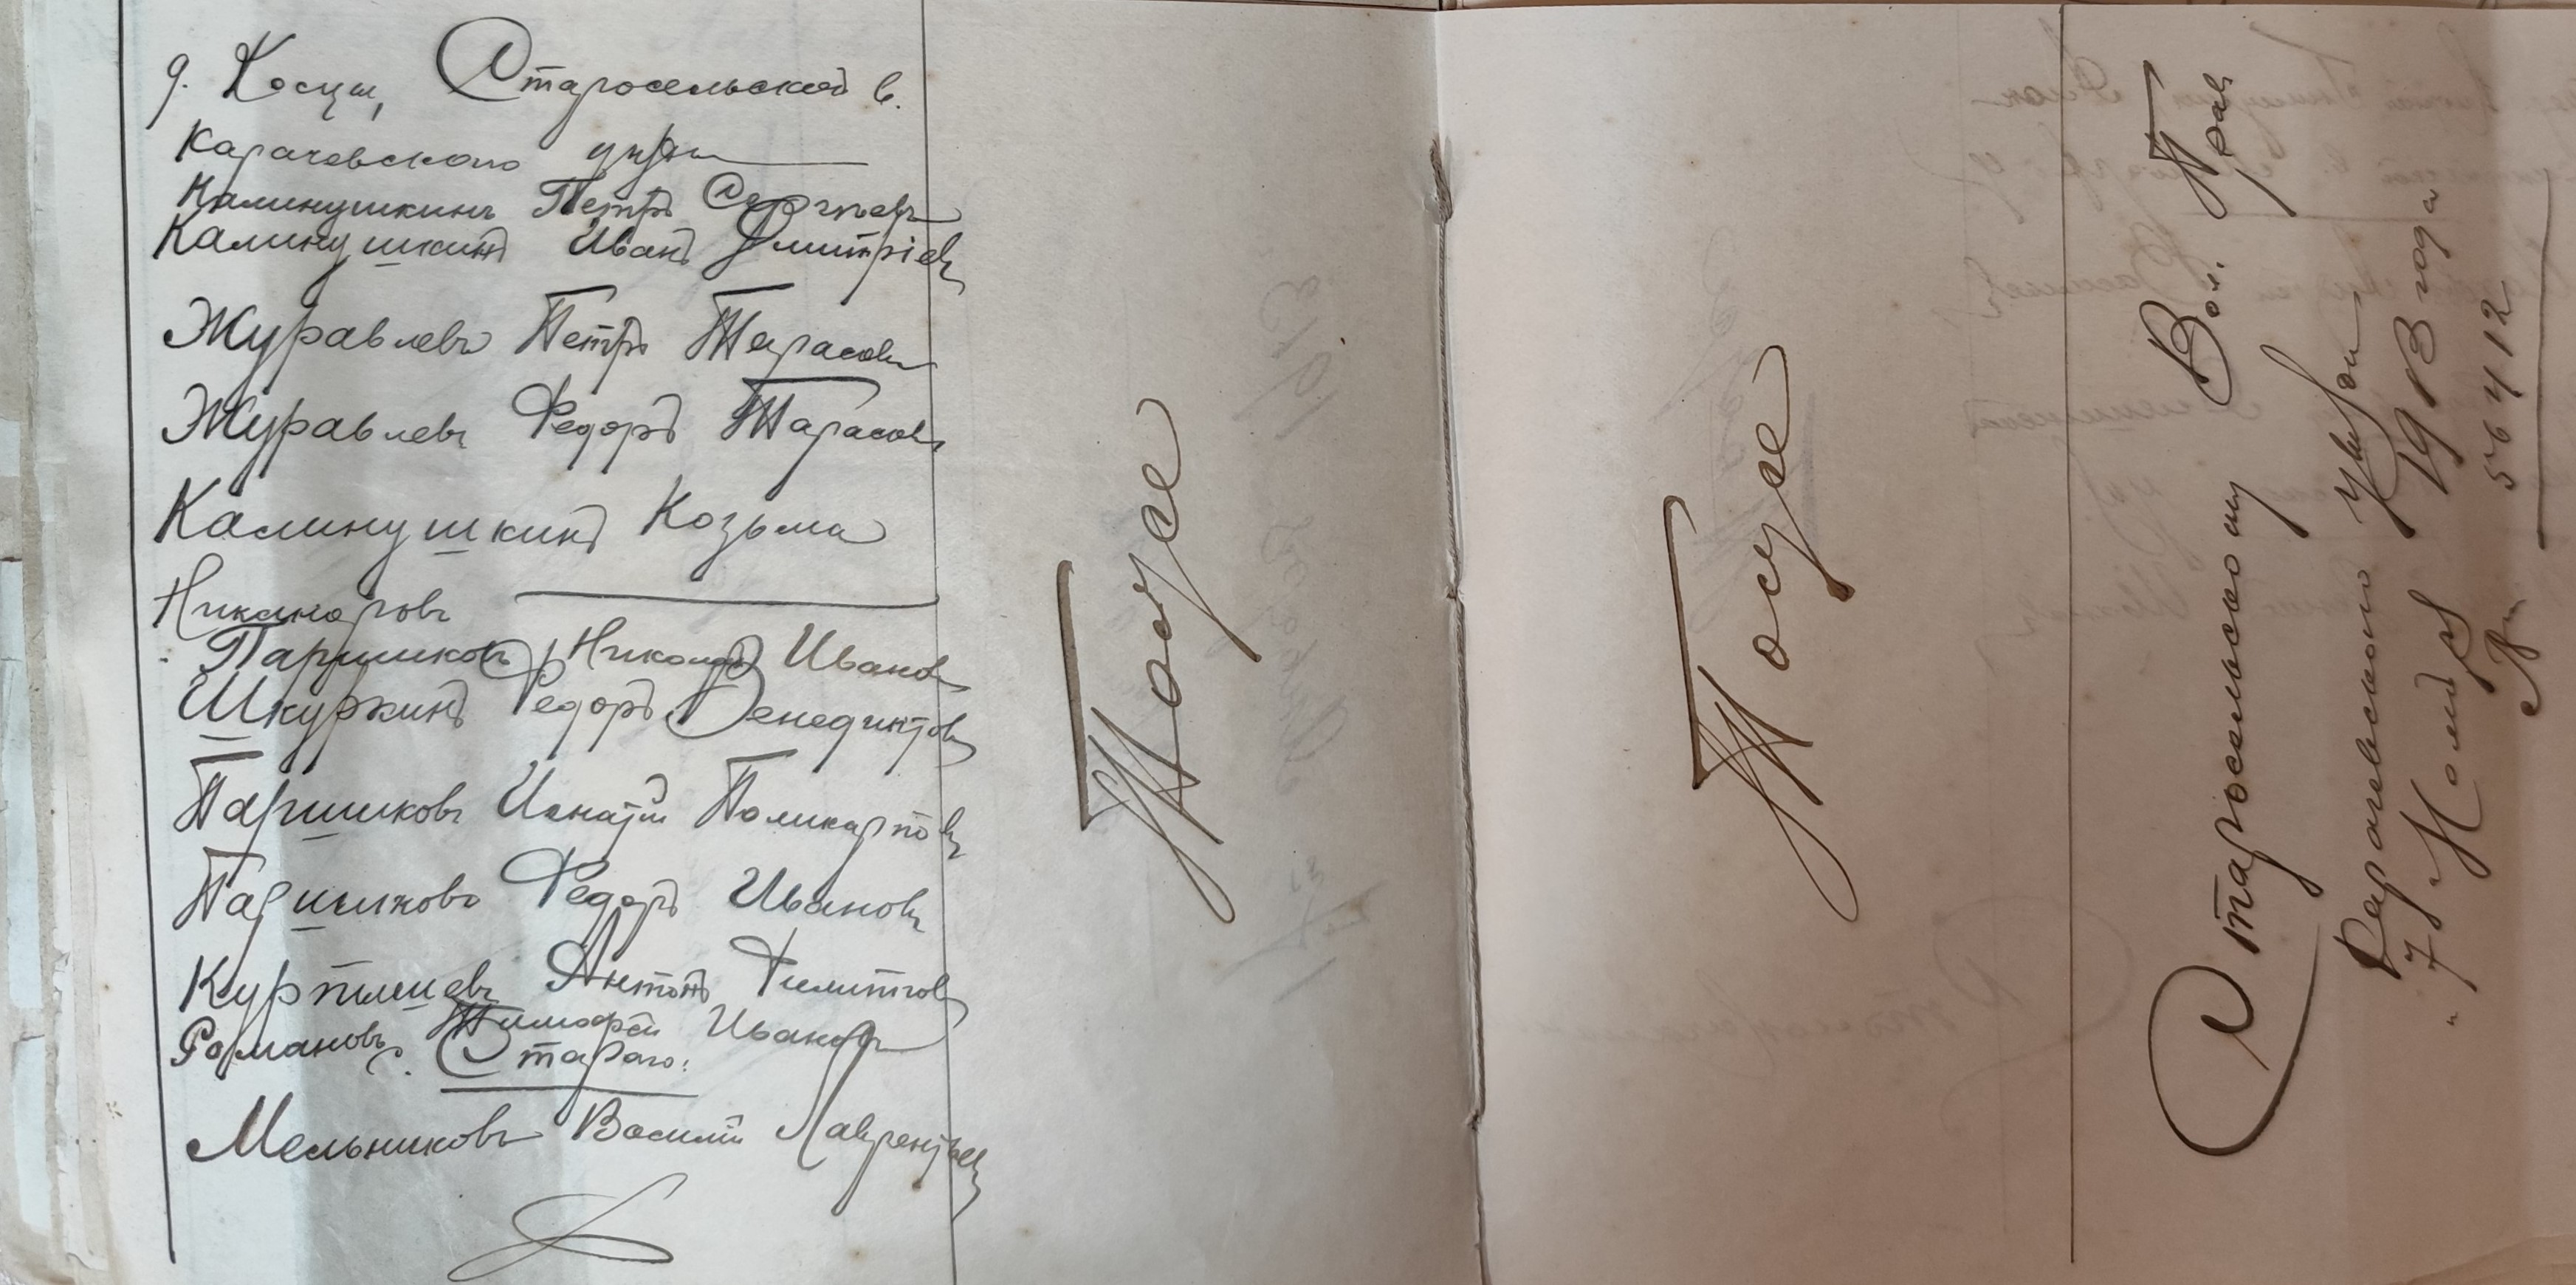 д. Косцы, Старосельской в.
Карачевского уезда
Калинушкинъ Петръ Сергѣевъ
Калинушкинъ Иванъ Дмитріевъ
Журавлевъ Петръ Тарасовъ
Журавлевъ Федоръ Тарасовъ
Калинушкинъ Козьма
Никаноровъ
Паршиковъ Николай Ивановъ
Шкуркинъ Федоръ Бенедиктовъ
Паршиковъ Игнатій Поликарповъ
Паршиковъ Федоръ Ивановъ
Курпишевъ Антонъ Филиповъ
Романовъ Тимофей Ивановъ
с. Стараго.
Мельниковъ Василій Лаврентьевъ
Тоже
Тоже
Старосельскому Вол. Прав
Карачевскаго уѣзда
" 7 " 1913 года
56412